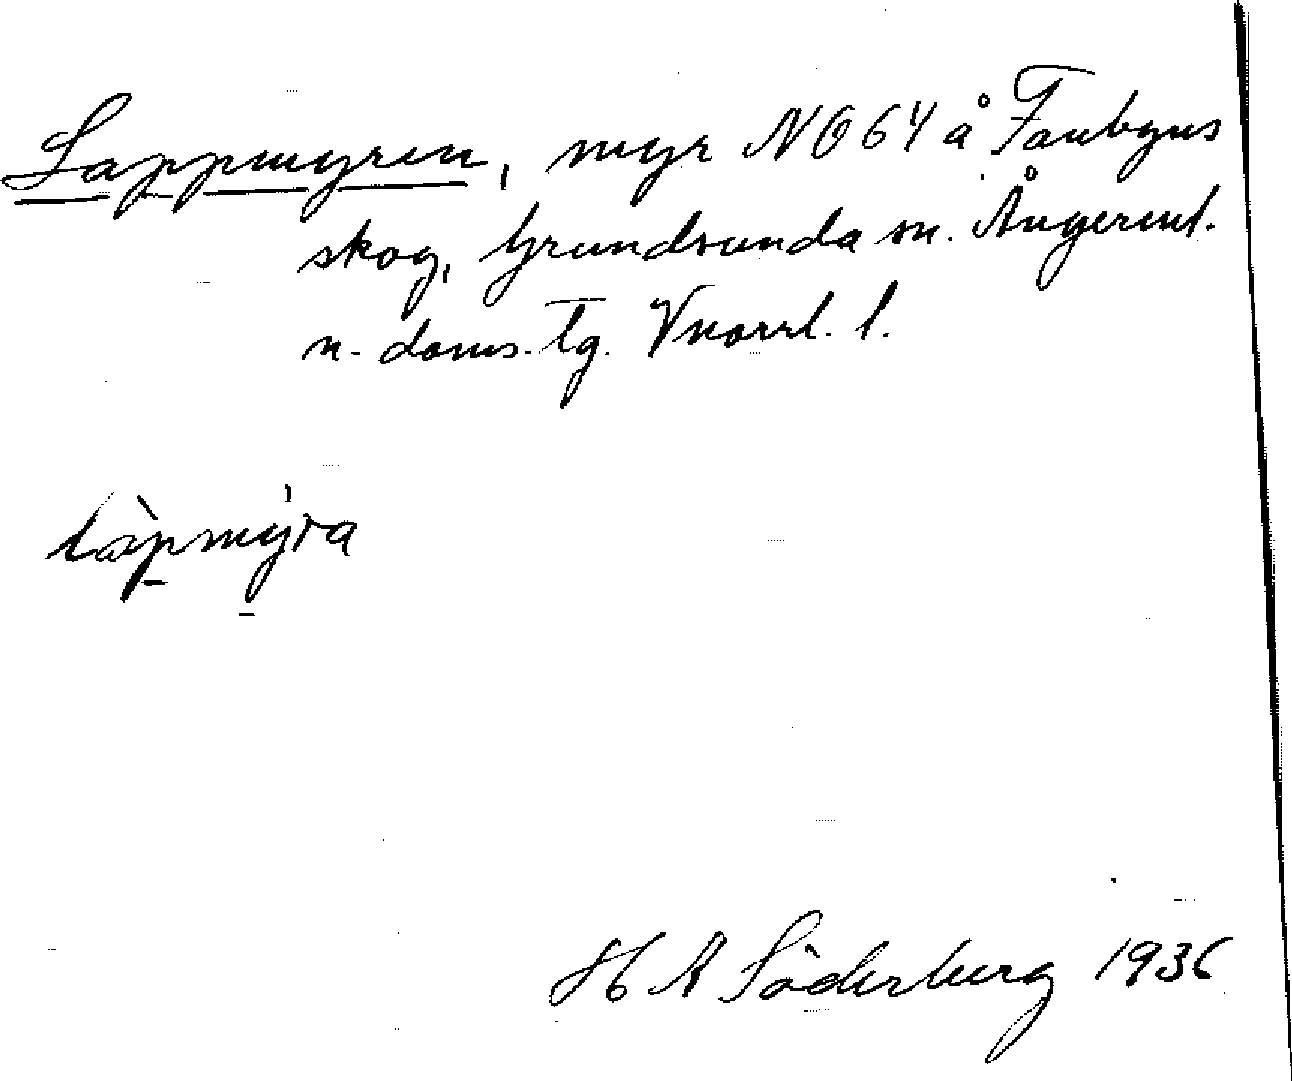 Lappmyren, myr NO 64 å Faubyns
skog, Grundsunda sn. Ångerml.
n. doms. tg. Vnorrl. l.
làpmýra
H A Söderberg 1936